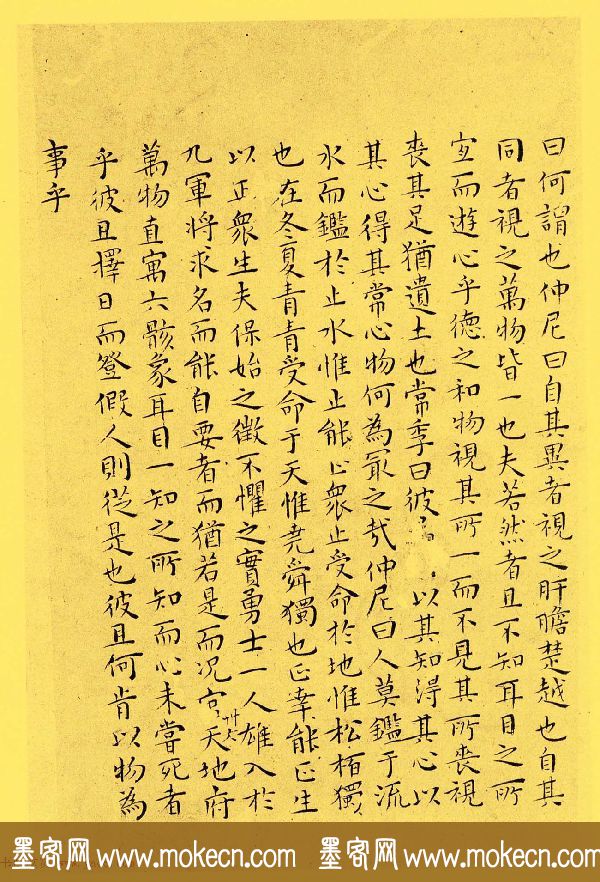 曰何謂也仲尼曰自其異者視之肝膽楚越也自其
同者視之萬物皆一也夫若然者且不知耳目之所
宜而遊心乎德之和物視其所一而不見其所喪視
喪其足猶遺土也常季曰彼以其知得其心以
其心得其常心物何為冣之哉仲尼曰人莫鑑于流
水而鑑於止水惟止能止衆止受命於地惟松栢獨
也在冬夏青青受命于天惟堯舜獨也正幸能正生
以正衆生夫保始之徵不懼之實勇士一人雄入於
九軍将求名而能自要者而猶若是而況官天地府
萬物直寓六骸象耳目一知之所知而心未嘗死者
乎彼且擇日而登假人則從是也彼且何肯以物為
事乎
墨客网 www.mokecn.com 墨客网 www.mokecn.com